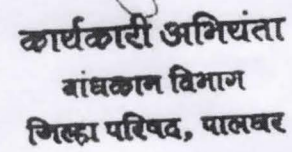 कार्यकारी अभियंता
बांधकाम विभाग
जिल्हा परिषद, पालघर